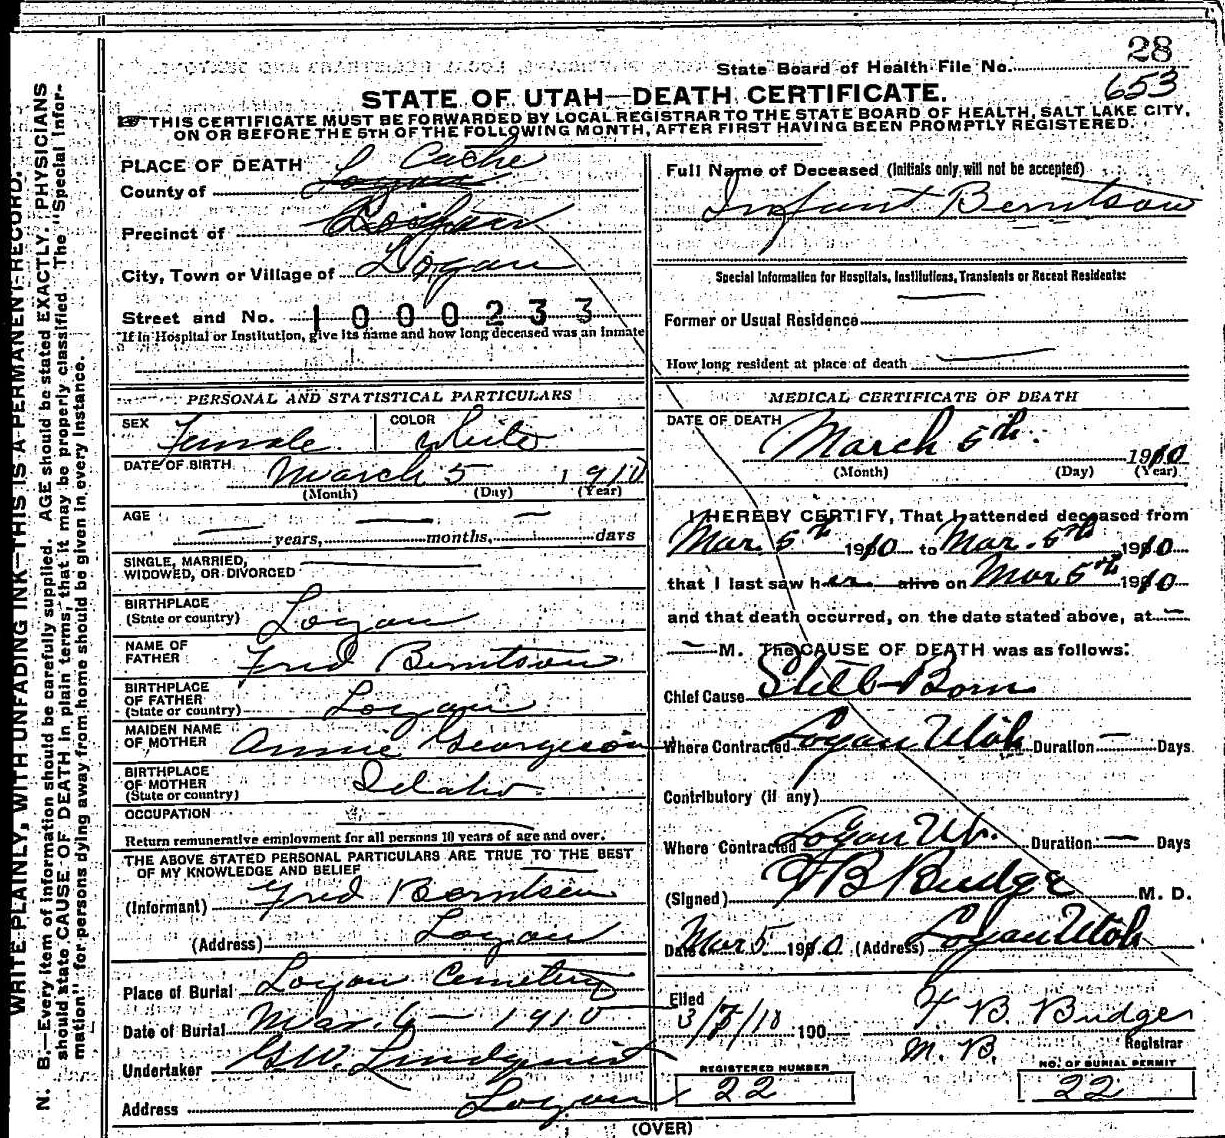 28
State Board of Health File No. 653
STATE OF UTAH—DEATH CERTIFICATE.
THIS CERTIFICATE MUST BE FORWARDED BY LOCAL REGISTRAR TO THE STATE BOARD OF HEALTH, SALT LAKE CITY,
ON OR BEFORE THE 5TH OF THE FOLLOWING MONTH, AFTER FIRST HAVING BEEN PROMPTLY REGISTERED.
WRITE PLAINLY, WITH UNFADING INK—THIS IS A PERMANENT RECORD.
N. B.—Every item of information should be carefully supplied. AGE should be stated EXACTLY. PHYSICIANS
should state CAUSE OF DEATH in plain terms, that it may be properly classified. The "Special Infor-
mation" for persons dying away from home should be given in every instance.
PLACE OF DEATH
County of Logan Cache
Precinct of Logan
City, Town or Village of Logan
Street and No. 1000233
If in Hospital or Institution, give its name and how long deceased was an inmate
PERSONAL AND STATISTICAL PARTICULARS
SEX Female COLOR White
DATE OF BIRTH March 5 1910
(Month) (Day) (Year)
AGE
years, months, days
SINGLE, MARRIED,
WIDOWED, OR DIVORCED
BIRTHPLACE
(State or country) Logan
NAME OF
FATHER Fred Berntson
BIRTHPLACE
OF FATHER
(State or country) Logan
MAIDEN NAME
OF MOTHER Annie Georgeson
BIRTHPLACE
OF MOTHER
(State or country) Idaho
OCCUPATION
Return remunerative employment for all persons 10 years of age and over.
THE ABOVE STATED PERSONAL PARTICULARS ARE TRUE TO THE BEST
OF MY KNOWLEDGE AND BELIEF
(Informant) Fred Berntsen
(Address) Logan
Place of Burial Logan Cemetery
Date of Burial Mar. 6 – 1910
Undertaker G W. Lindquist
Address Logan
Full Name of Deceased (Initials only will not be accepted)
Infant Berntson
Special Information for Hospitals, Institutions, Transients or Recent Residents:
Former or Usual Residence
How long resident at place of death
MEDICAL CERTIFICATE OF DEATH
DATE OF DEATH
March 5th. 1910
(Month) (Day) (Year)
I HEREBY CERTIFY, That I attended deceased from
Mar. 5th 1910 to Mar. 5th 1910
that I last saw her alive on Mar 5th 1910
and that death occurred, on the date stated above, at —
— M. The CAUSE OF DEATH was as follows:
Chief Cause Still-Born
Where Contracted Logan Utah Duration — Days
Contributory (if any)
Where Contracted Logan Ut. Duration — Days
(Signed) F B Budge M. D.
Date Mar 5 1910 (Address) Logan Utah
Filed
3/5/10 190 F. B. Budge
M. D. Registrar
REGISTERED NUMBER
22
NO. OF BURIAL PERMIT
22
(OVER)